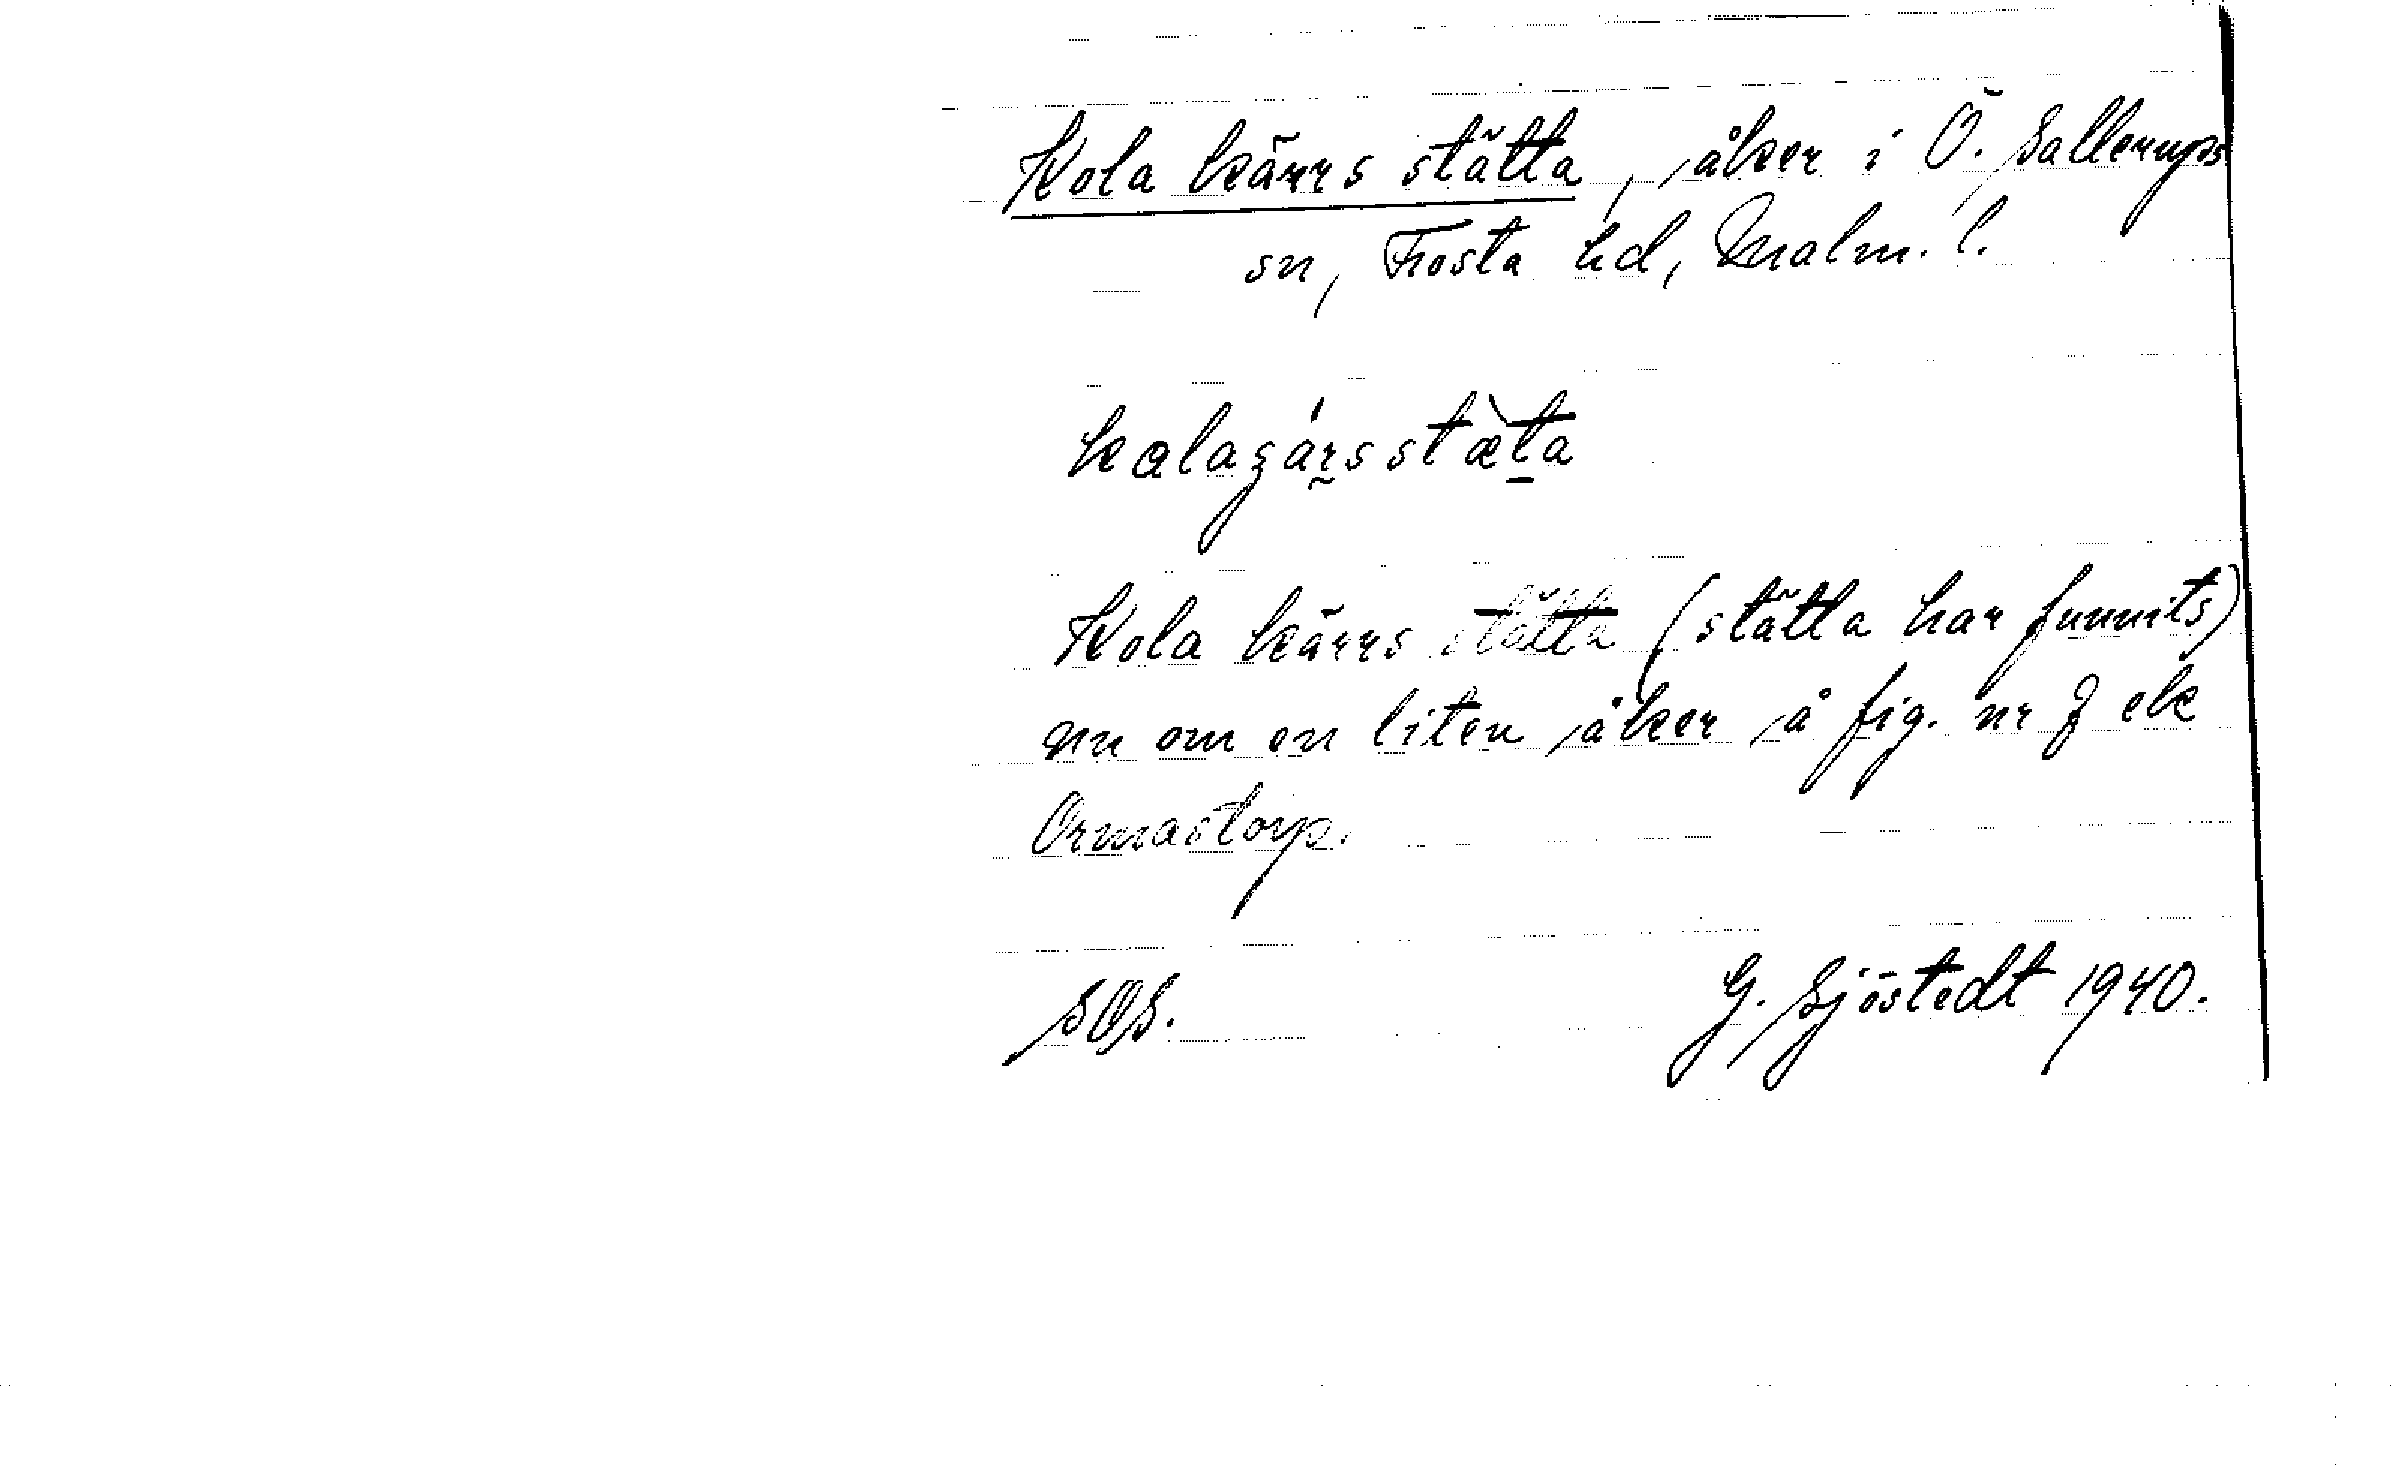 Kola kärrs stätta, åker i Ö. Sallerups
sn, Frosta hd, Malm. l.
Kola kärrs stätta (stätta har funnits)
nu om en liten åker å fig. nr 7 ek
Ormastorp.
SOS. G. Sjöstedt 1940.